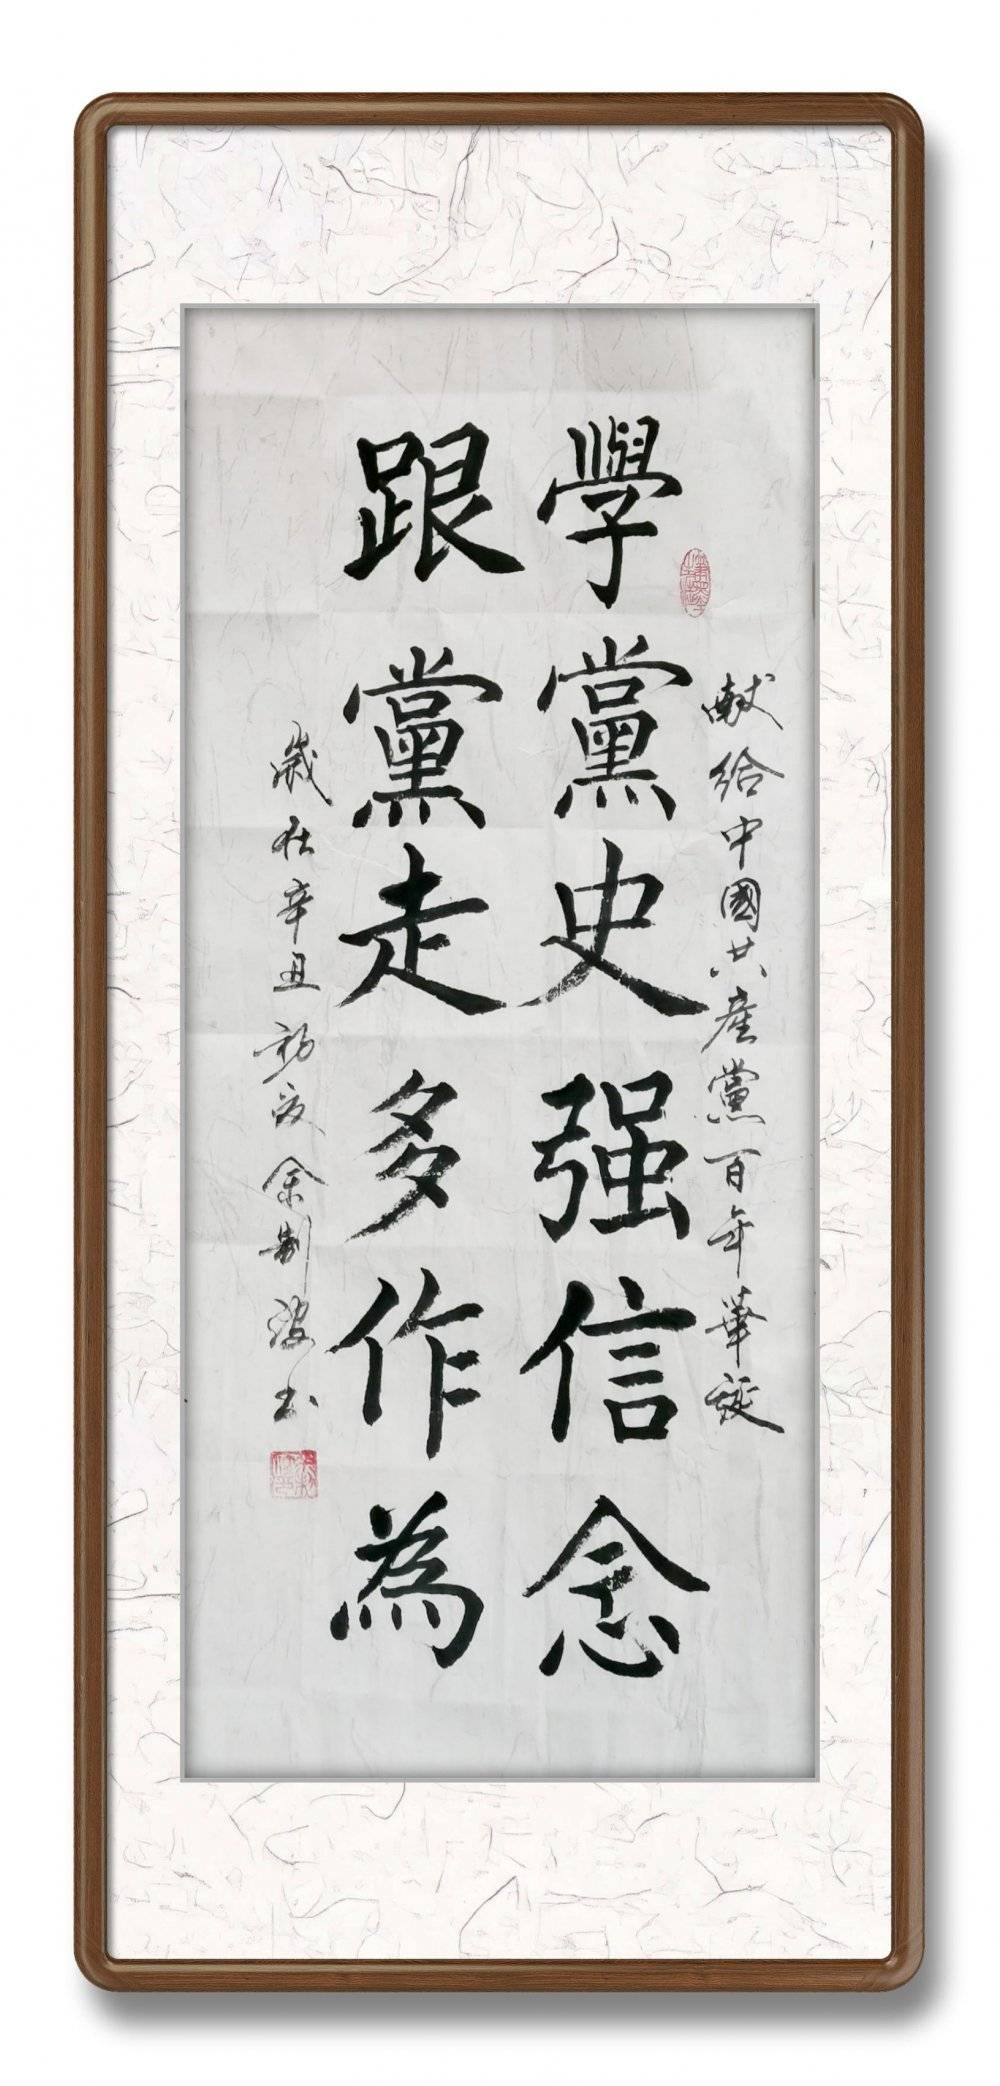 献给中國共產黨百年華诞
學黨史强信念
跟黨走多作為
歲在辛丑初夏余制波书